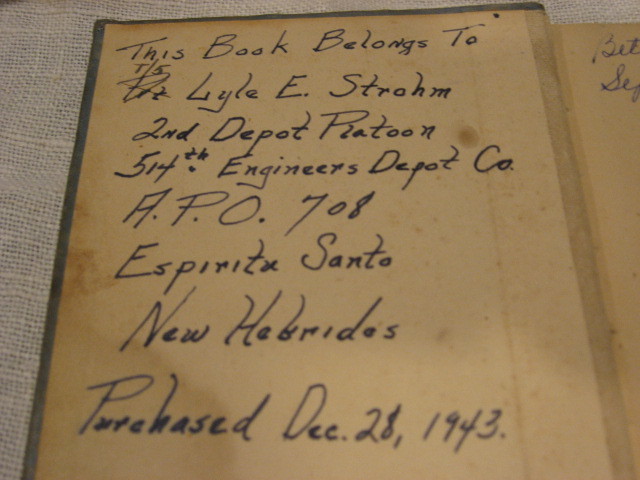 This Book Belongs To
T/5
Pvt Lyle E. Strohm
2nd Depot Platoon
514th Engineers Depot Co.
A.P.O. 708
Espiritu Santo
New Hebrides
Purchased Dec. 28, 1943.
Bet
Sep